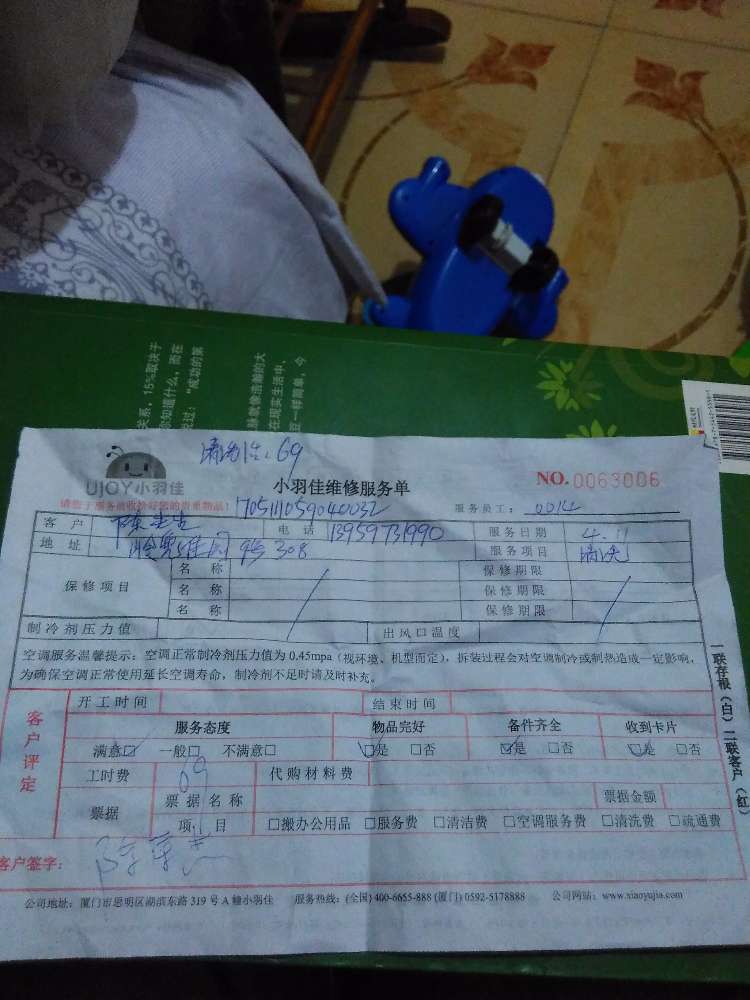 关系，15%取决于
你知道什么，而在
说过：“成功的第
脉就像浩瀚的大
在现实生活中，
豆一样简单，今
UJOY小羽佳
小羽佳维修服务单
NO.0063006
170511059040032
服务员工：0014
客 户
电 话 13959731990
服务日期 4.11
地 址 308
服务项目 清洗
保修项目
名 称
保修期限
名 称
保修期限
名 称
保修期限
制冷剂压力值
出风口温度
空调服务温馨提示：空调正常制冷剂压力值为0.45mpa（视环境、机型而定），拆装过程会对空调制冷或制热造成一定影响，
为确保空调正常使用延长空调寿命，制冷剂不足时请及时补充。
客户评定
开工时间
结束时间
服务态度
物品完好
备件齐全
收到卡片
满意□ 一般□ 不满意□
□是 □否
□是 □否
□是 □否
工时费
代购材料费
票据
票据名称
票据金额
项 目
□搬办公用品 □服务费 □清洁费 □空调服务费 □清洗费 □疏通费
客户签字：
公司地址：厦门市思明区湖滨东路319号A幢小羽佳 服务热线：(全国) 400-6655-888 (厦门) 0592-5178888 公司网站：www.xiaoyujia.com
一联存根（白）二联客户（红）